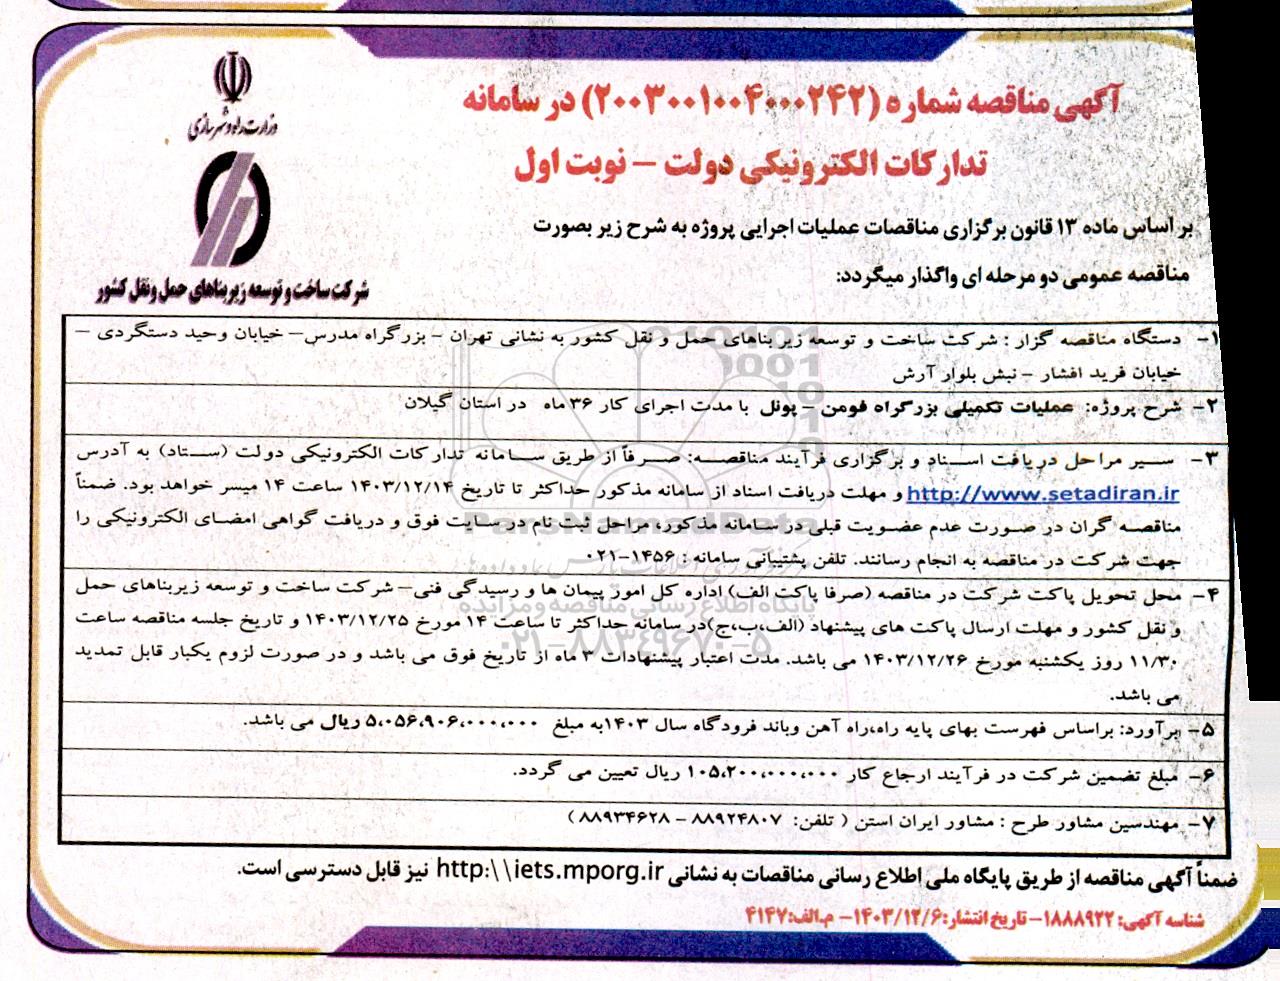 وزارت راه و شهرسازی
شرکت ساخت و توسعه زیربناهای حمل و نقل کشور
آگهی مناقصه شماره (۲۰۰۳۰۰۱۰۰۴۰۰۰۲۴۲) در سامانه
تدارکات الکترونیکی دولت – نوبت اول
بر اساس ماده ۱۳ قانون برگزاری مناقصات عملیات اجرایی پروژه به شرح زیر بصورت
مناقصه عمومی دو مرحله ای واگذار میگردد:
۱- دستگاه مناقصه گزار : شرکت ساخت و توسعه زیر بناهای حمل و نقل کشور به نشانی تهران – بزرگراه مدرس– خیابان وحید دستگردی –
خیابان فرید افشار – نبش بلوار آرش
۲- شرح پروژه: عملیات تکمیلی بزرگراه فومن – پونل با مدت اجرای کار ۳۶ ماه در استان گیلان
۳- سیر مراحل دریافت اسناد و برگزاری فرآیند مناقصه: صرفاً از طریق سامانه تدارکات الکترونیکی دولت (ستاد) به آدرس
http://www.setadiran.ir و مهلت دریافت اسناد از سامانه مذکور حداکثر تا تاریخ ۱۴۰۳/۱۲/۱۴ ساعت ۱۴ میسر خواهد بود. ضمناً
مناقصه گران در صورت عدم عضویت قبلی در سامانه مذکور، مراحل ثبت نام در سایت فوق و دریافت گواهی امضای الکترونیکی را
جهت شرکت در مناقصه به انجام رسانند. تلفن پشتیبانی سامانه : ۱۴۵۶-۰۲۱
۴- محل تحویل پاکت شرکت در مناقصه (صرفا پاکت الف) اداره کل امور پیمان ها و رسیدگی فنی– شرکت ساخت و توسعه زیربناهای حمل
و نقل کشور و مهلت ارسال پاکت های پیشنهاد (الف،ب،ج)در سامانه حداکثر تا ساعت ۱۴ مورخ ۱۴۰۳/۱۲/۲۵ و تاریخ جلسه مناقصه ساعت
۱۱/۳۰ روز یکشنبه مورخ ۱۴۰۳/۱۲/۲۶ می باشد. مدت اعتبار پیشنهادات ۳ ماه از تاریخ فوق می باشد و در صورت لزوم یکبار قابل تمدید
می باشد.
۵- برآورد: براساس فهرست بهای پایه راه،راه آهن وباند فرودگاه سال ۱۴۰۳به مبلغ ۵،۰۵۶،۹۰۶،۰۰۰،۰۰۰ ریال می باشد.
۶- مبلغ تضمین شرکت در فرآیند ارجاع کار ۱۰۵،۲۰۰،۰۰۰،۰۰۰ ریال تعیین می گردد.
۷- مهندسین مشاور طرح : مشاور ایران استن ( تلفن: ۸۸۹۲۴۸۰۷ – ۸۸۹۳۴۶۲۸ )
ضمناً آگهی مناقصه از طریق پایگاه ملی اطلاع رسانی مناقصات به نشانی http:\\iets.mporg.ir نیز قابل دسترسی است.
شناسه آگهی: ۱۸۸۸۹۲۲- تاریخ انتشار:۱۴۰۳/۱۲/۶- م.الف:۴۱۴۷
ParsNamadData
پایگاه اطلاع رسانی مناقصه و مزایده
۰۲۱-۸۸۳۴۹۶۷۰-۵